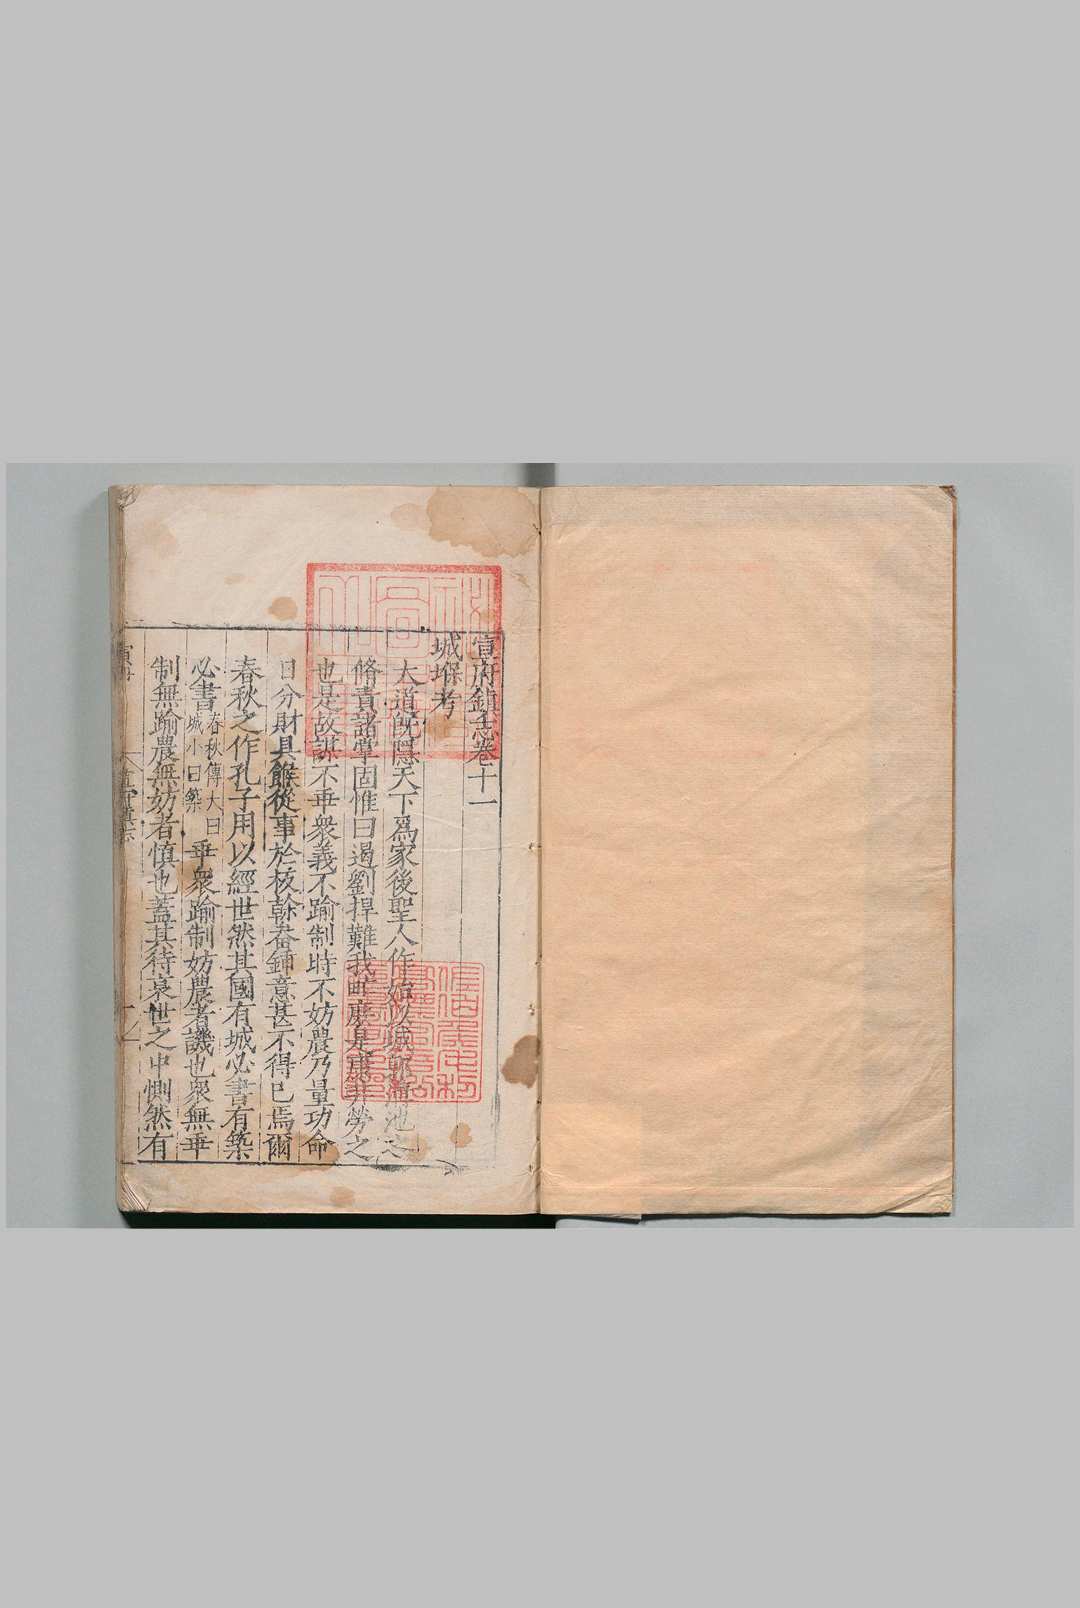 宣府鎮志卷十一
城堡考
大道既隱天下爲家後聖人作始以城郭溝池之
脩責諸掌固惟曰遏劉捍難我
是
勞之
也是故謀不乖衆義不踰制時不妨農乃量功命
日分財具餱從事於板榦畚鍤意甚不得已焉爾
春秋之作孔子用以經世然其國有城必書有築
必書
春秋傳大曰
城小曰築
乖衆踰制妨農者譏也衆無乖
制無踰農無妨者慎也蓋其待衰世之中惻然有